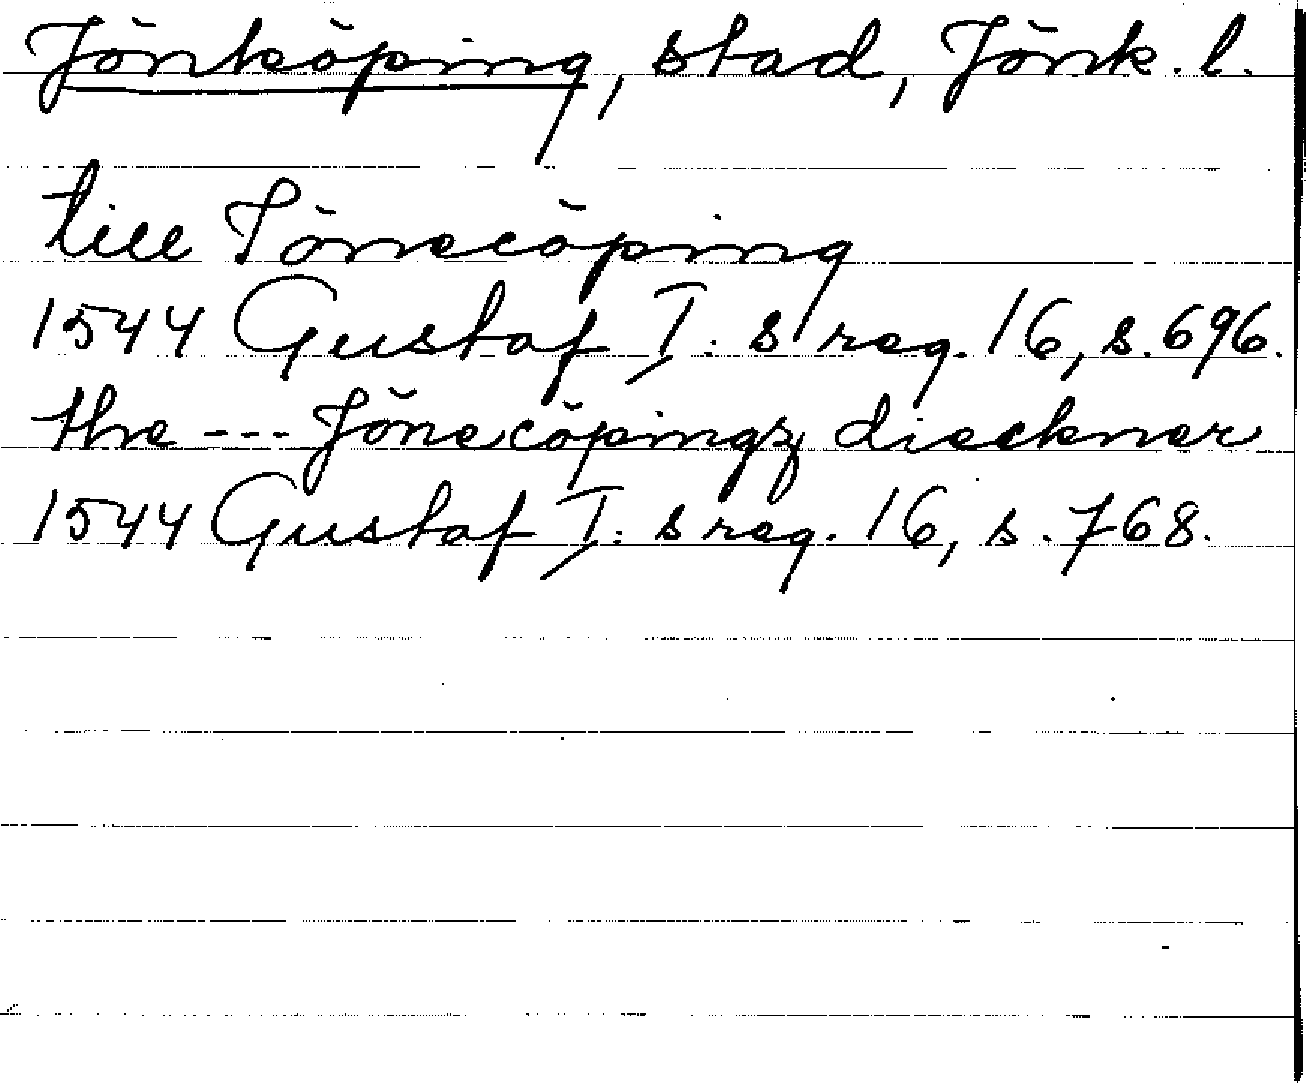 Jönköping, stad, Jönk. l.
till Jönecöping
1544 Gustaf I:s reg. 16, s. 696.
thre --- Jönecöpingz diecknar
1544 Gustaf I:s reg. 16, s. 768.